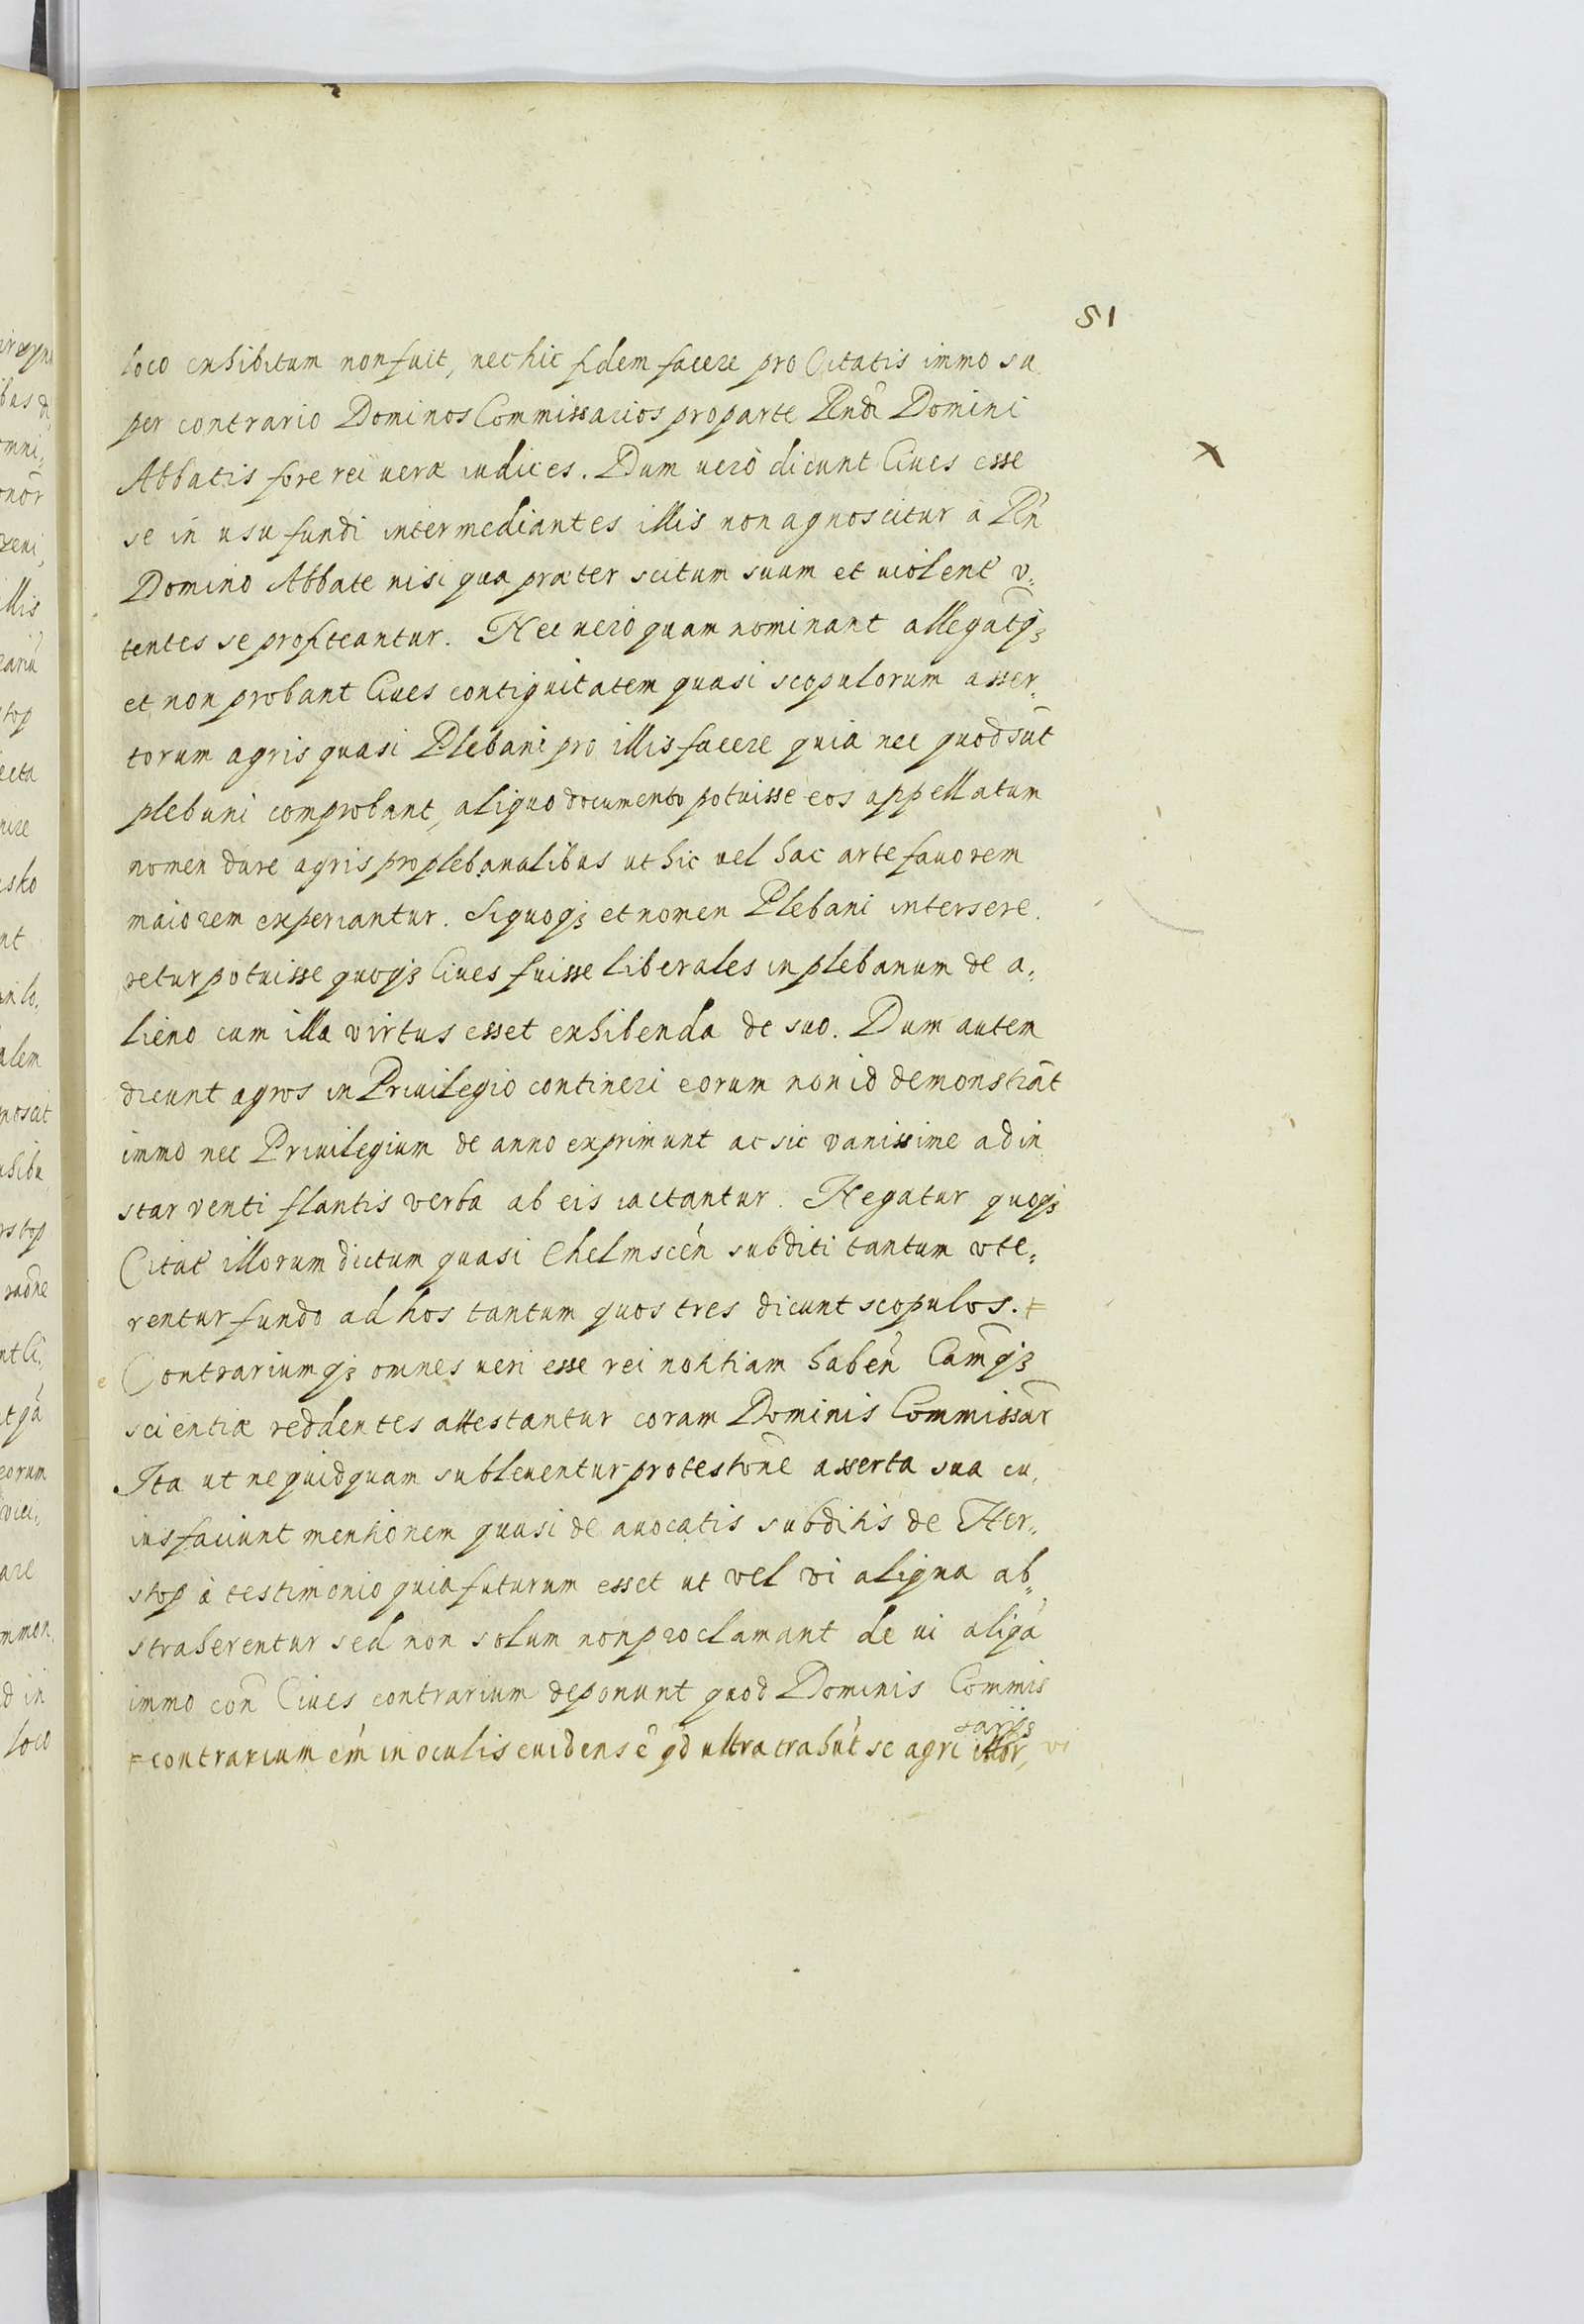 51
loco exhibitum non fuit, nec hic fidem facere pro Citatis immo su
per contrario Dominos Commissarios pro parte Rndi Domini
Abbatis fore rei veræ iudices. Dum verò dicunt Ciues esse
se in usu fundi intermediantes illis non agnoscitur à Rñ
Domino Abbate nisi qua præter scitum suum et violent v:
tentes se profiteantur. Nec verò quam nominant allegatq3
et non probant Ciues contiguitatem quasi scopulorum asser,
torum agris quasi Plebani pro illis facere quia nec quod sūt
plebani comprobant, aliquo documento potuisse eos appellatum
nomen dare agris pro plebanalibus ut hic vel hac arte favorem
maiorem experiantur. Si quoq3 et nomen Plebani intersere.
retur potuisse quoq3 Ciues fuisse liberales in plebanum de a,
lieno cum illa virtus esset exhibenda de suo. Dum autem
dicunt agros in Priuilegio contineri eorum non id demonstrāt
immo nec Priuilegium de anno exprimunt ac sic vanissime ad in
star venti flantis verba ab eis iactantur. Negatur quoq3
Citat illorum dictum quasi Chelmscēn subditi tantum vte,
rentur fundo ad hos tantum quos tres dicunt scopulos. ⹀
Contrariumq3 omnes veri esse rei notitiam habēn Cam̄q3
scientiæ reddentes attestantur coram Dominis Commissar̄
Ita ut nequidquam subleventur protestōne asserta sua cu,
ius faciunt mentionem quasi de avocatis subditis de Her,,
stop à testimonio quia futurum esset ut vel vi aliqua ab,,
straherentur sed non solum non proclamant de vi aliqā
immo con̄ Ciues contrarium deponunt quod Dominis Commis
sarijs
⹀ contrarium em̄ in oculis euidens ē qd ultra trahūt se agri illor,